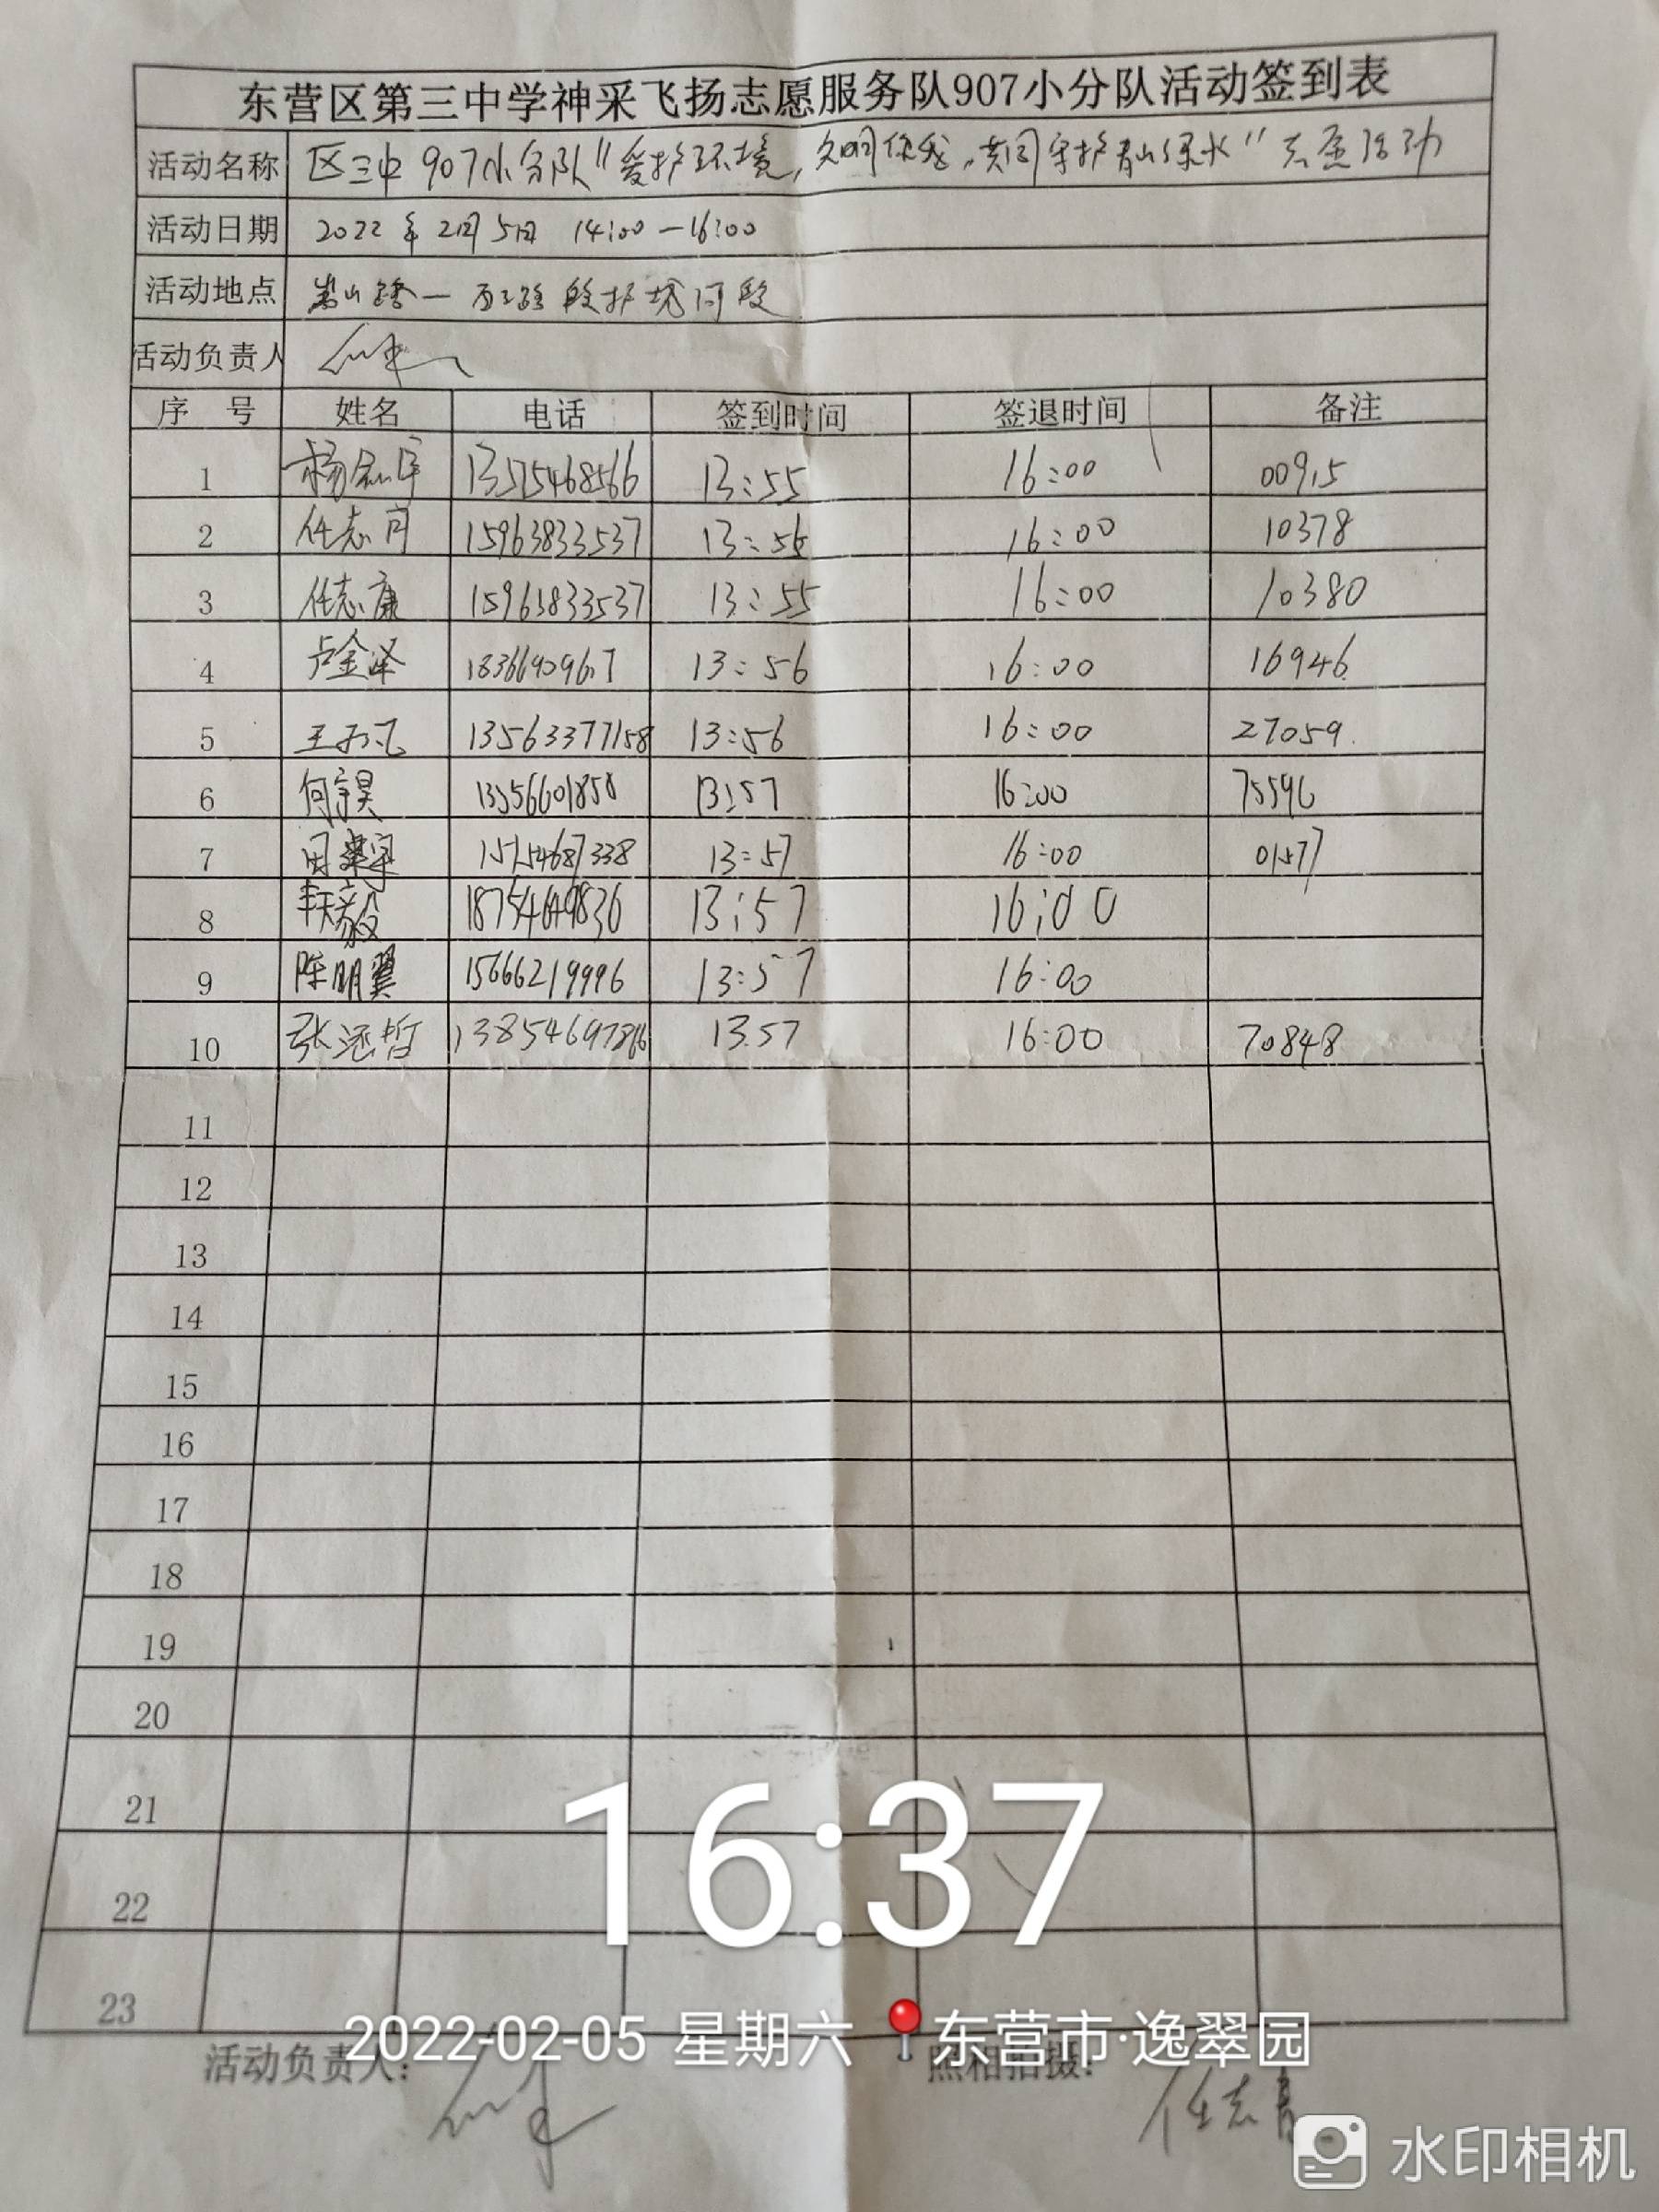 东营区第三中学神采飞扬志愿服务队907小分队活动签到表
活动名称 区三中907小分队"爱护环境,  共同守护青山绿水"志愿活动
活动日期 2022年2月5日 14:00—16:00
活动地点 嵩山路— 段护城河段
活动负责人
序 号 姓名 电话 签到时间 签退时间 备注
1 13:55 16:00 00915
2 任志 15963833537 13:56 16:00 10378
3 任志康 15963833537 13:55 16:00 10380
4 卢金泽 13:56 16:00 16946
5 13563377158 13:56 16:00 27059
6 何宇昊 13:57 16:00 75596
7 15154687338 13:57 16:00 01577
8 18754649836 13:57 16:00
9 陈明翼 15666219996 13:57 16:00
10 张涵哲 13.57 16:00 70848
11
12
13
14
15
16
17
18
19
20
21
22
23
16:37
2022-02-05 星期六 东营市·逸翠园
活动负责人: 照相拍摄: 任志
水印相机